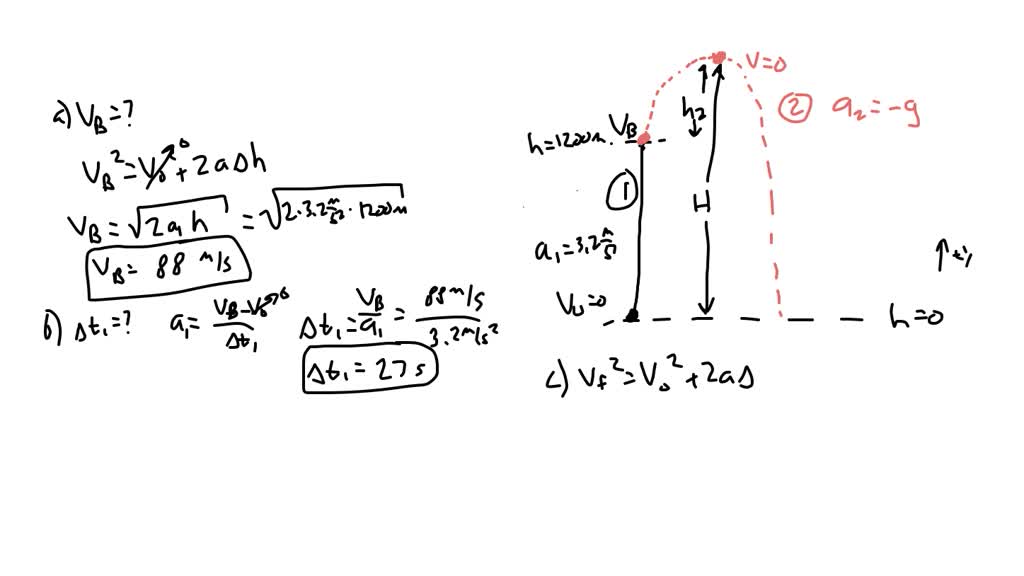 a) V_B = ?
V_B² = V₀²↗⁰ + 2aΔh
V_B = √(2a₁h) = √(2·3.2 m/s² · 1200m)
V_B = 88 m/s
b) Δt₁ = ?
a₁ = (V_B - V₀↗⁰)/Δt₁
Δt₁ = V_B/a₁ = (88 m/s)/(3.2 m/s²)
Δt₁ = 27 s
V=0
② a₂ = -g
h₂
h = 1200m. V_B
①
H
a₁ = 3.2 m/s²
V₀=0
h=0
c) V_f² = V₀² + 2aΔ